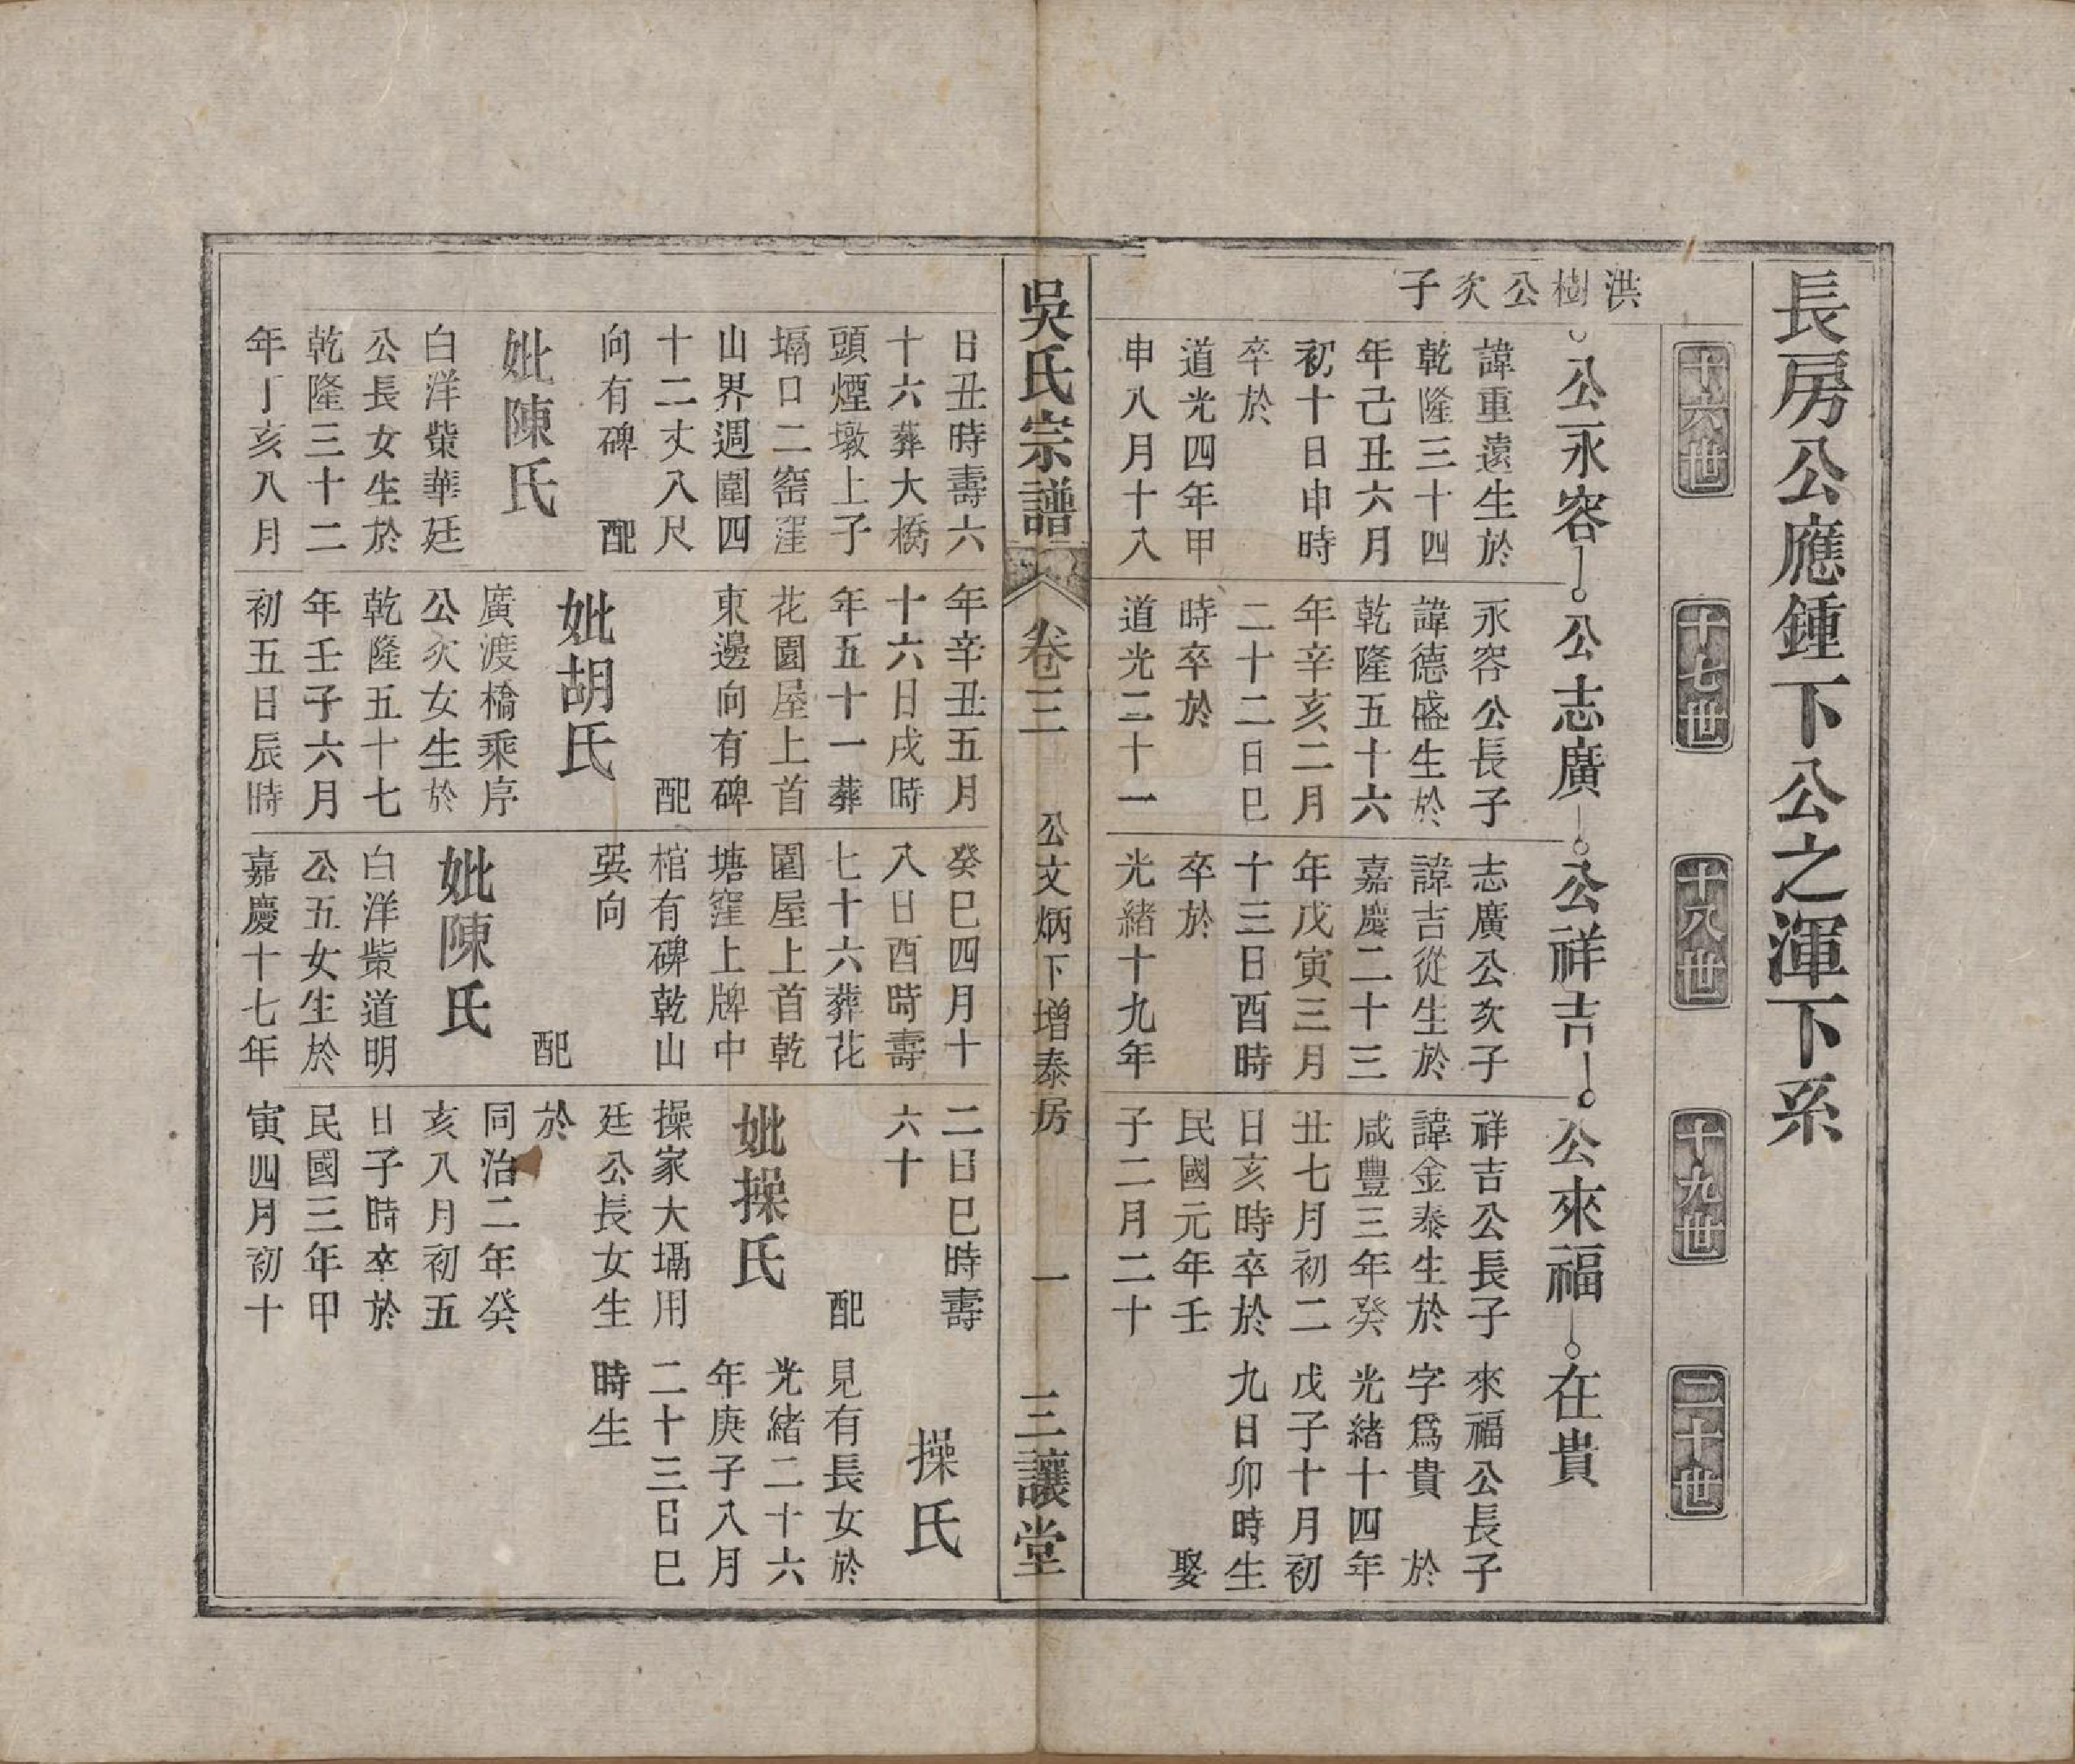 長房公應鍾下公之渾下系
十六世
十七世
十八世
十九世
二十世
洪樹公次子
公永容
諱重遠生於
乾隆三十四
年己丑六月
初十日申時
卒於
道光四年甲
申八月十八
公志廣
永容公長子
諱德盛生於
乾隆五十六
年辛亥二月
二十二日巳
時卒於
道光二十一
公祥吉
志廣公次子
諱吉從生於
嘉慶二十三
年戊寅三月
十三日酉時
卒於
光緒十九年
公來福
祥吉公長子
諱金泰生於
咸豐三年癸
丑七月初二
日亥時卒於
民國元年壬
子二月二十
在貴
來福公長子
字爲貴 於
光緒十四年
戊子十月初
九日卯時生
娶
吳氏宗譜 卷三 公文炳下增泰房 一 三讓堂
日丑時壽六
十六葬大橋
頭煙墩上子
塥口二窑窪
山界週圍四
十二丈八尺
向有碑 配
妣陳氏
白洋柴華廷
公長女生於
乾隆三十二
年丁亥八月
年辛丑五月
十六日戌時
年五十一葬
花園屋上首
東邊向有碑
配
妣胡氏
廣渡橋乘序
公次女生於
乾隆五十七
年壬子六月
初五日辰時
癸巳四月十
八日酉時壽
七十六葬花
園屋上首乾
塘窪上牌中
棺有碑乾山
巽向
配
妣陳氏
白洋柴道明
公五女生於
嘉慶十七年
二日巳時壽
六十
配
妣操氏
操家大塥用
廷公長女生
於
同治二年癸
亥八月初五
日子時卒於
民國三年甲
寅四月初十
操氏
見有長女於
光緒二十六
年庚子八月
二十三日巳
時生